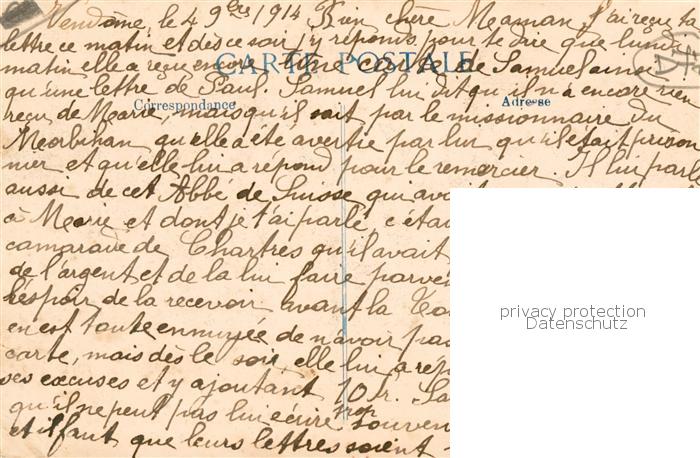 Vendôme, le 4 9bre 1914 Bien chère Maman J'ai reçu ta
lettre ce matin et dès ce soir j'y réponds pour te dire que lundi
matin elle a reçu encore une carte de Samuel ainsi
CARTE POSTALE
qu'une lettre de Paul. Samuel lui dit qu'il n'a encore rien
Correspondance
Adresse
reçu de Marie, mais qu'il sait par le missionnaire du
Morbihan qu'elle a été avertie par lui qu'il était prison
nier et qu'elle lui a répond pour le remercier. Il lui parle
aussi de cet Abbé de Suisse qui avait
à Marie et dont je t'ai parlé, c'était
camarade de Chartres qu'il avait
de l'argent et de la lui faire parve
l'espoir de la recevoir avant la
en est toute ennuyée de n'avoir pas
carte, mais dès le soir elle lui a rép
ses excuses et y ajoutant 10 fr. Sa
qu'il ne peut pas lui écrire trop souven
et il faut que leurs lettres soient
privacy protection
Datenschutz